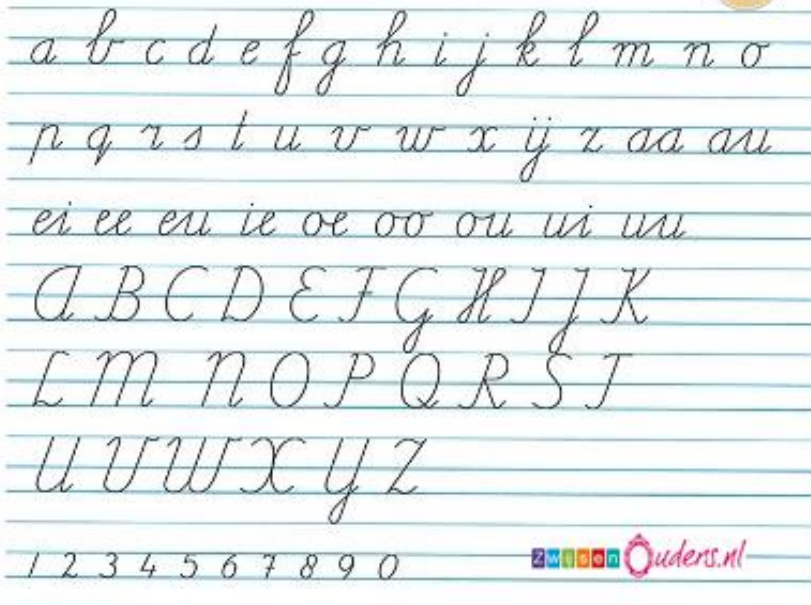 a b c d e f g h i j k l m n o
p q r s t u v w x ij z aa au
ei ee eu ie oe oo ou ui uu
A B C D E F G H I J K
L M N O P Q R S T
U V W X Y Z
1 2 3 4 5 6 7 8 9 0
Zwijsen Ouders.nl